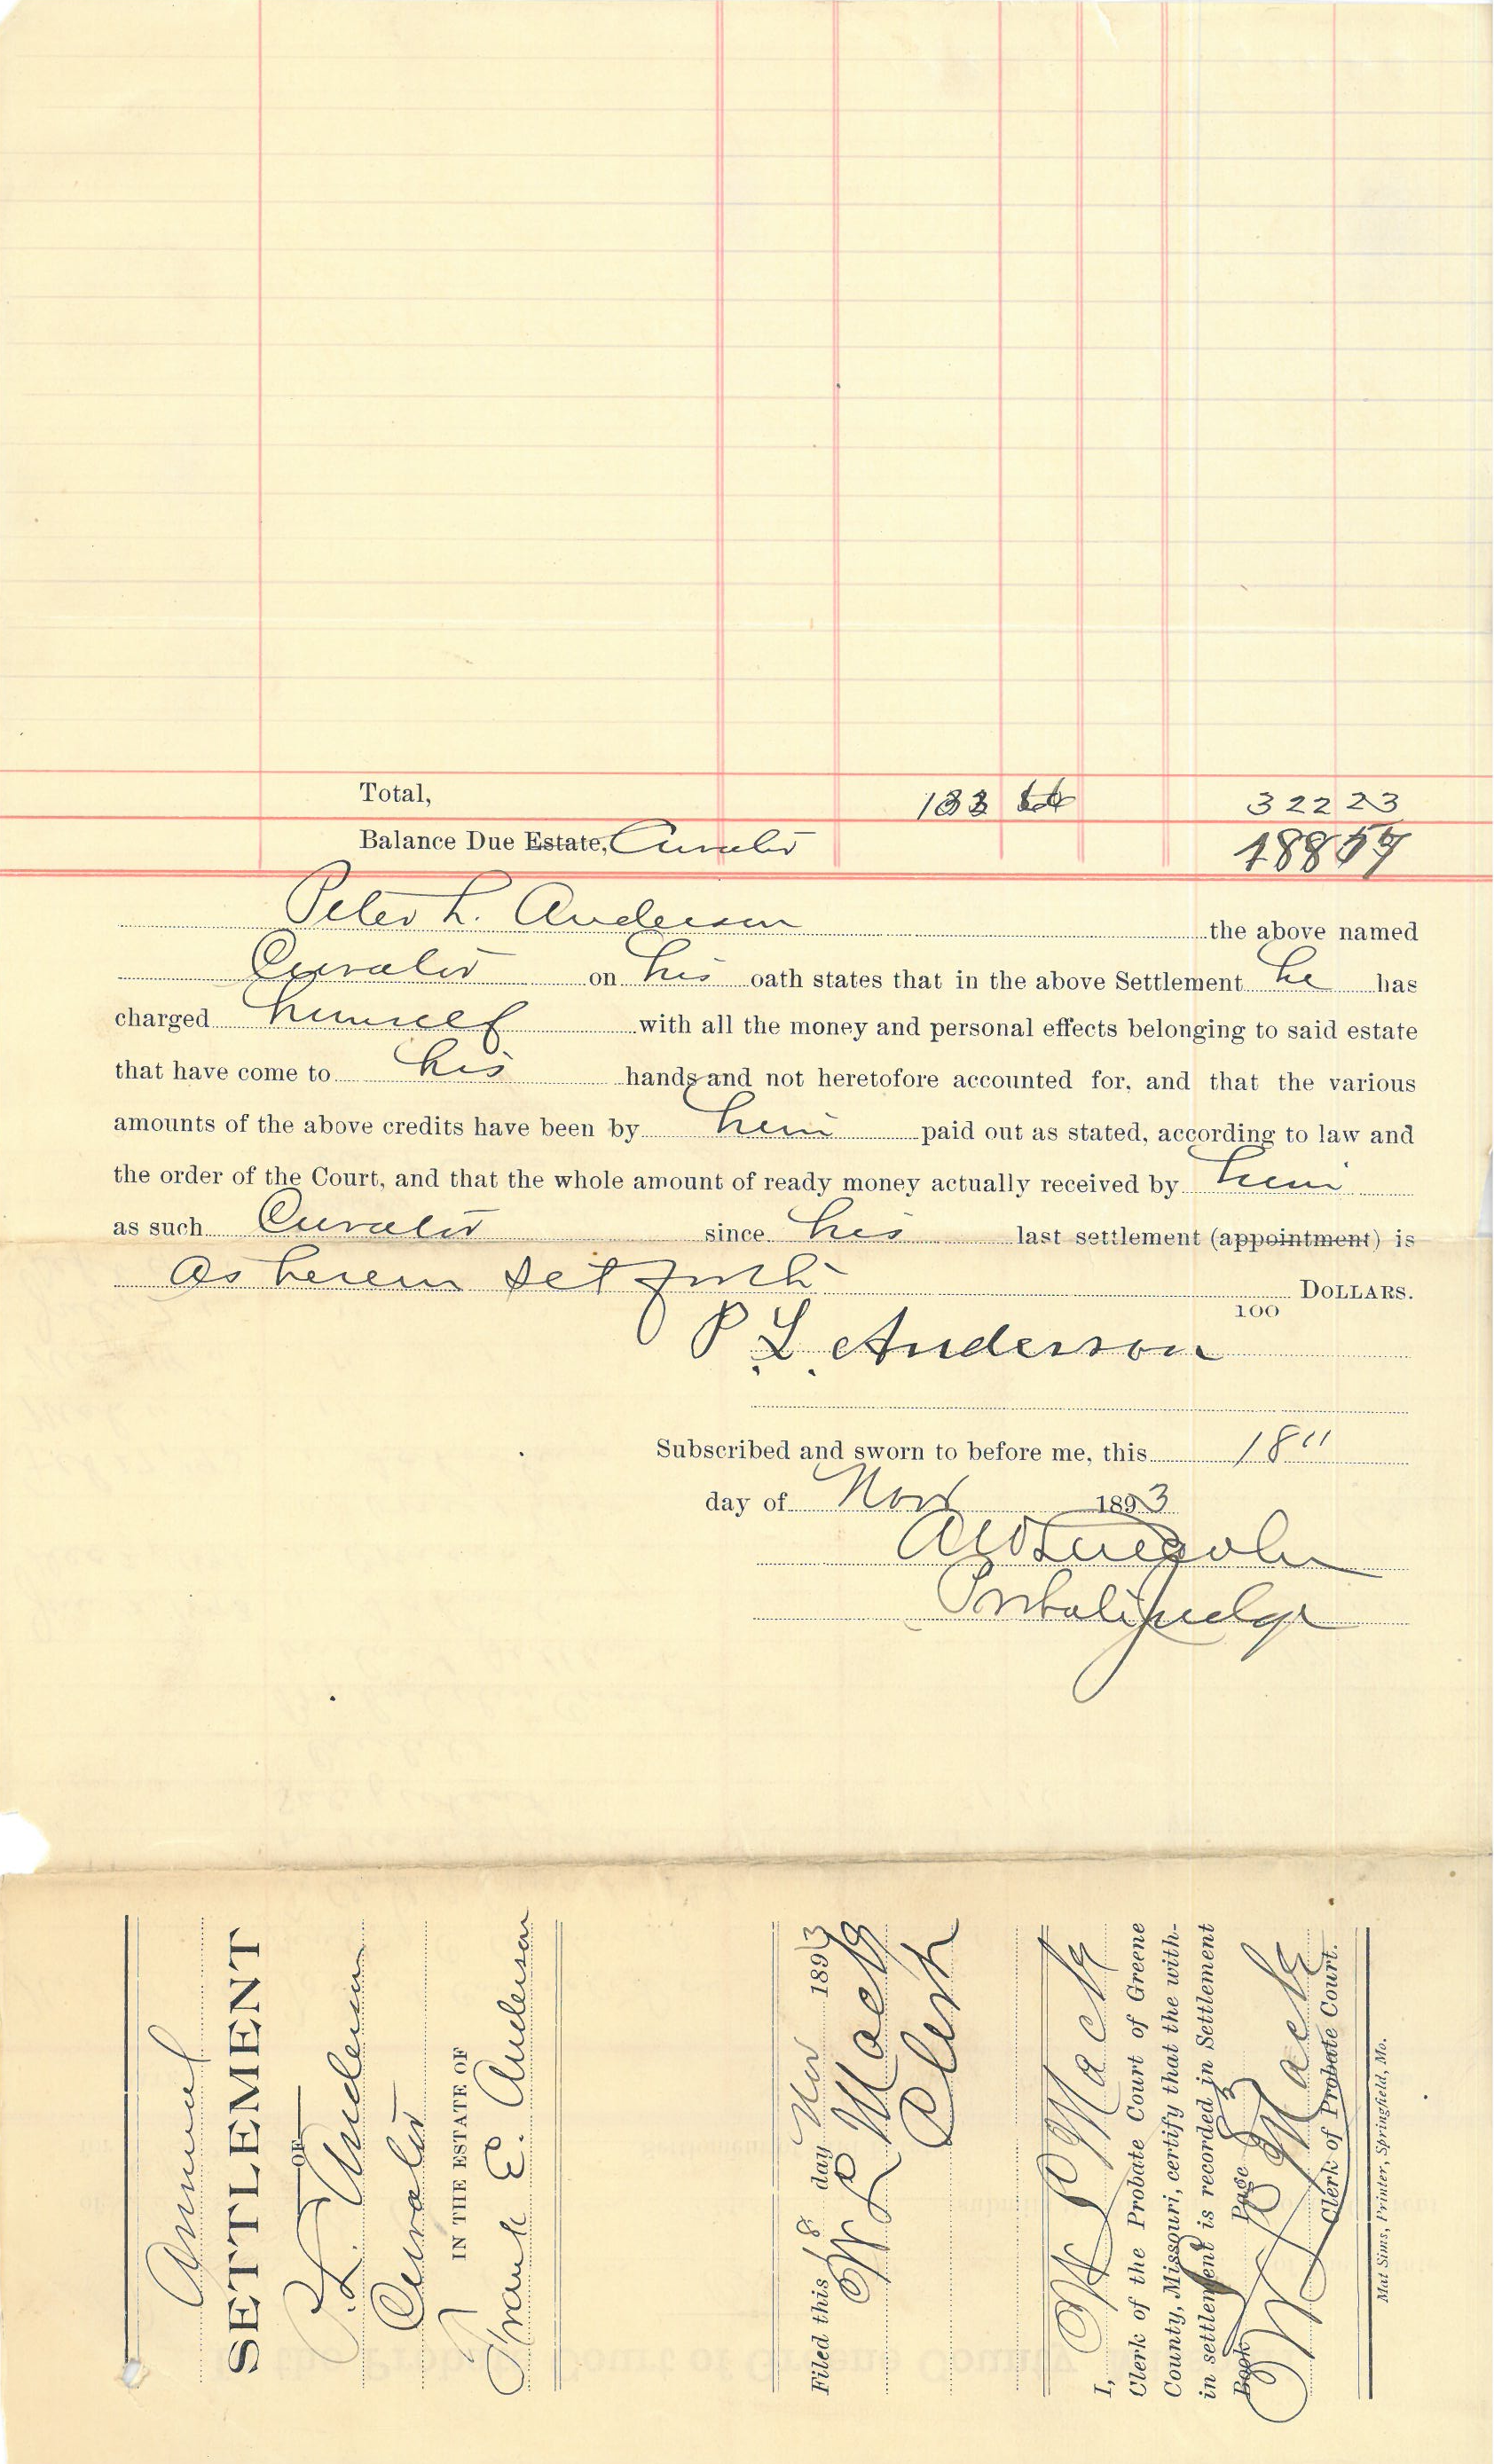 Total, 133 32223
Balance Due Estate, Curator 188
Peter L. Anderson the above named
Curator on his oath states that in the above Settlement he has
charged himself with all the money and personal effects belonging to said estate
that have come to his hands and not heretofore accounted for, and that the various
amounts of the above credits have been by him paid out as stated, according to law and
the order of the Court, and that the whole amount of ready money actually received by him
as such Curator since his last settlement (appointment) is
as herein set forth DOLLARS.
100
P. L. Anderson
Subscribed and sworn to before me, this 18"
day of Nov 1893
Probate Judge
Annual
SETTLEMENT
OF
P. L. Anderson
Curator
IN THE ESTATE OF
Frank E. Anderson
Filed this 18 day Nov 1893
Clerk
I,
Clerk of the Probate Court of Greene
County, Missouri, certify that the with-
in settlement is recorded in Settlement
Book Page
Clerk of Probate Court.
Mat Sims, Printer, Springfield, Mo.